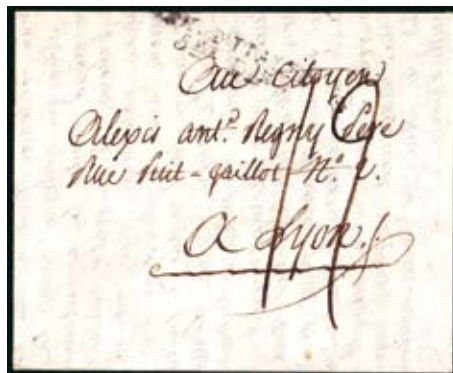 Au Citoyen
Alexis ant.e Regny Pere
Rue Puit-gaillot N.o 2.
A Lyon